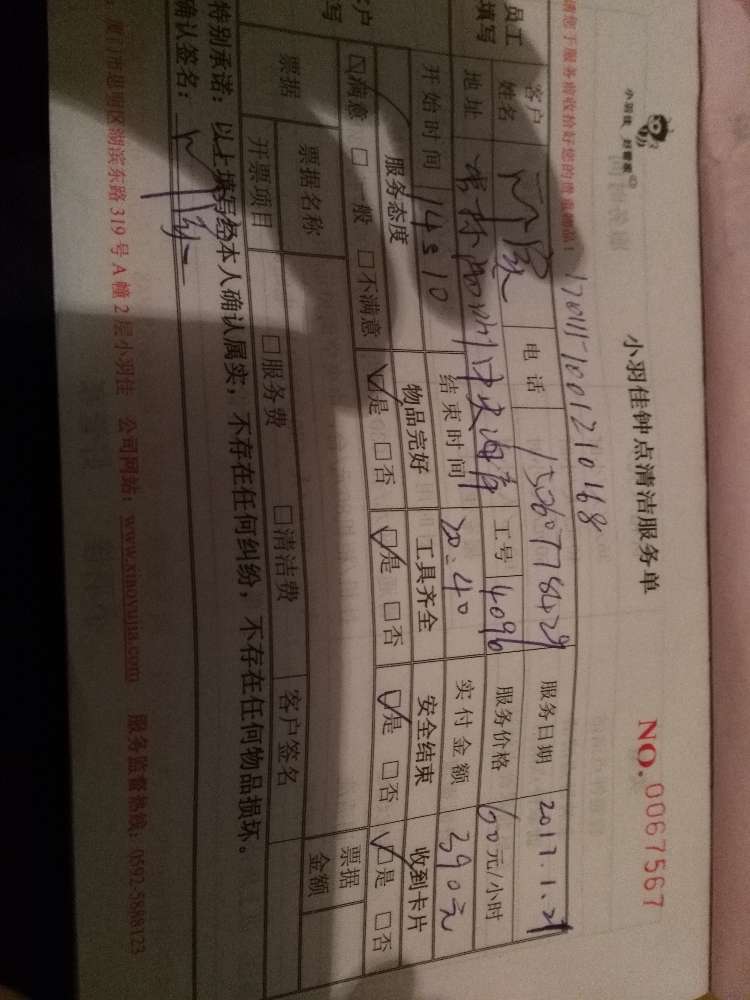 小羽佳 好管家
小羽佳钟点清洁服务单
NO. 0067567
请您于服务前收拾好您的贵重物品！
170111-1001210168
员工填写
客户姓名
电话 15260778429
服务日期 2017.1.21
地址
工号 4096
服务价格 60元/小时
开始时间 14:10
结束时间 20:40
实付金额 390元
客户填写
服务态度 物品完好 工具齐全 安全结束 收到卡片
☑满意 □一般 □不满意 ☑是 □否 ☑是 □否 ☑是 □否 ☑是 □否
票据
票据名称
票据金额
开票项目 □服务费 □清洁费 客户签名
特别承诺：以上填写经本人确认属实，不存在任何纠纷，不存在任何物品损坏。
确认签名：
厦门市思明区湖滨东路319号A幢2层小羽佳 公司网站：www.xiaoyujia.com 服务监督热线：0592-5888123